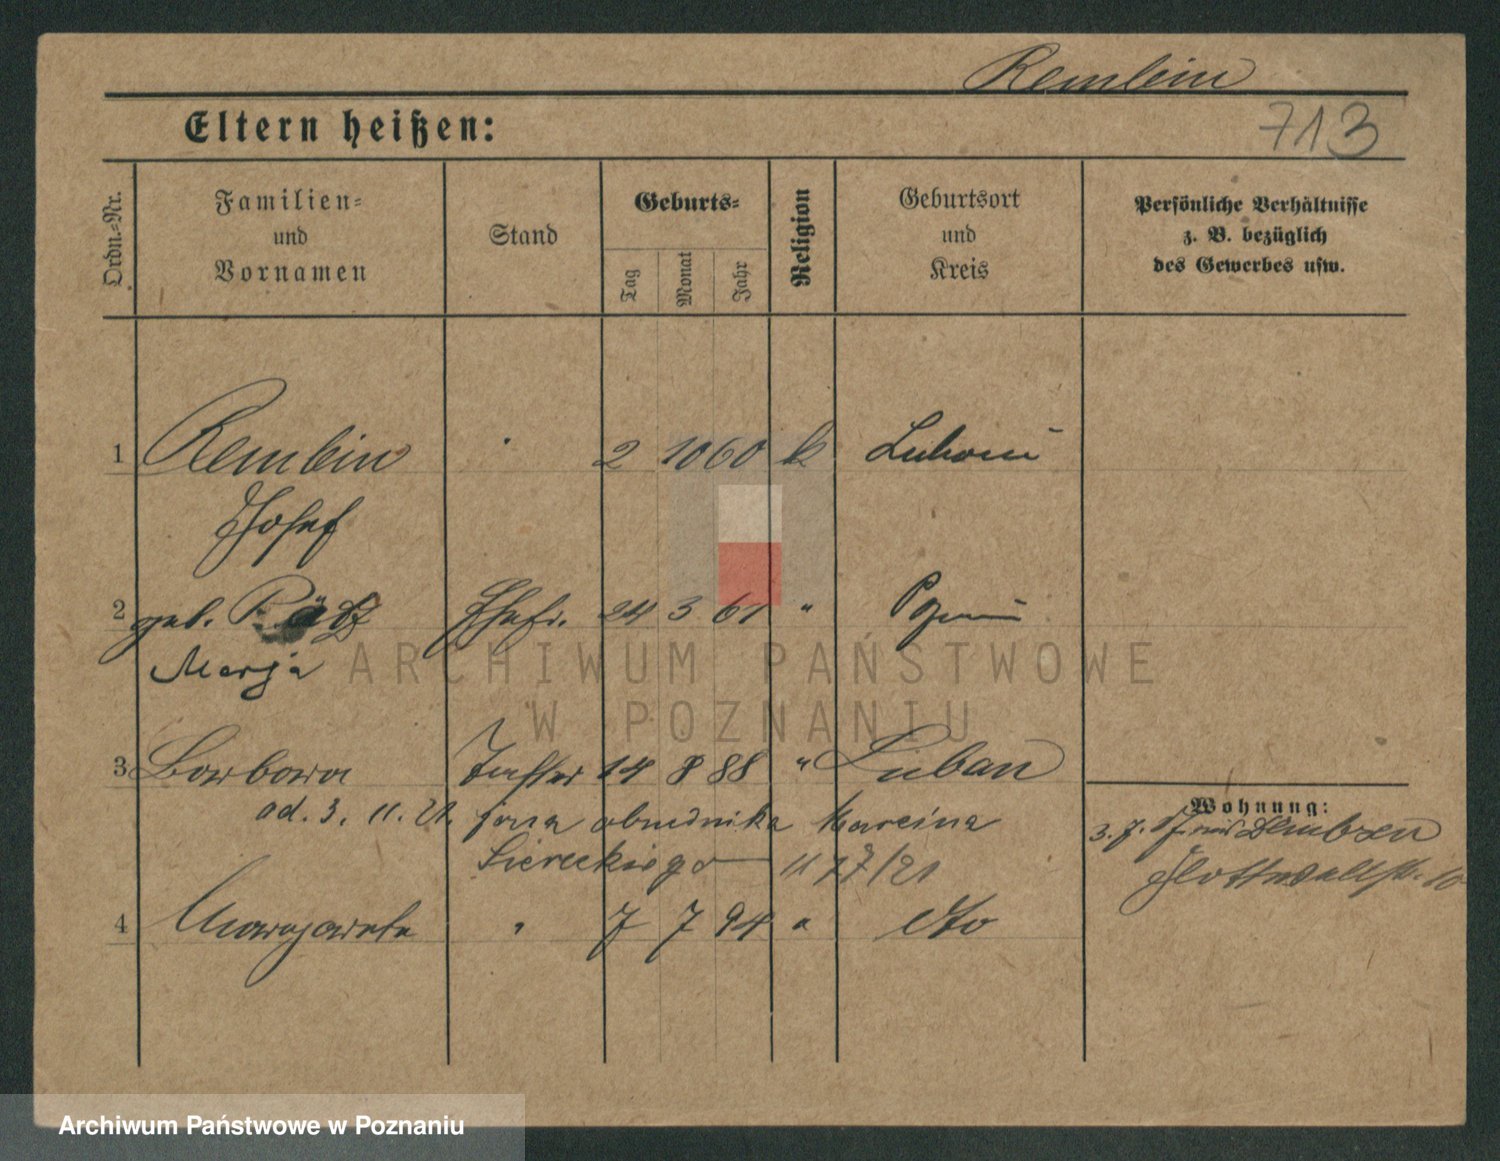 Remlein
713
Eltern heißen:
Ordn.-Nr.
Familien-
und
Vornamen
Stand
Geburts-
Tag
Monat
Jahr
Religion
Geburtsort
und
Kreis
Persönliche Verhältnisse
z. B. bezüglich
des Gewerbes usw.
1 Remlein 2 10 60 k
Josef
2 geb. Ehefr. 24 3 61 "
Marja
3 Barbara Tochter 14 8 88 " Luban
od. 3. 11. 21. żona Marcina
Siereckiego 11 17/21
4 Margarete " 7 7 94 " dto
Wohnung:
3. 7. Dembsen
10
ARCHIWUM PAŃSTWOWE
W POZNANIU
Archiwum Państwowe w Poznaniu